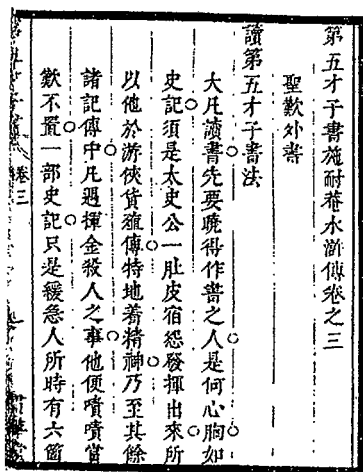 第五才子書施耐菴水滸傳卷之三
聖歎外書
讀第五才子書法
大凡讀書先要曉得作書之人是何心胸如
史記須是太史公一肚皮宿怨發揮出來所
以他於游俠貨殖傳特地着精神乃至其餘
諸記傳中凡遇揮金殺人之事他便嘖嘖賞
歎不置一部史記只是緩急人所時有六箇
卷三